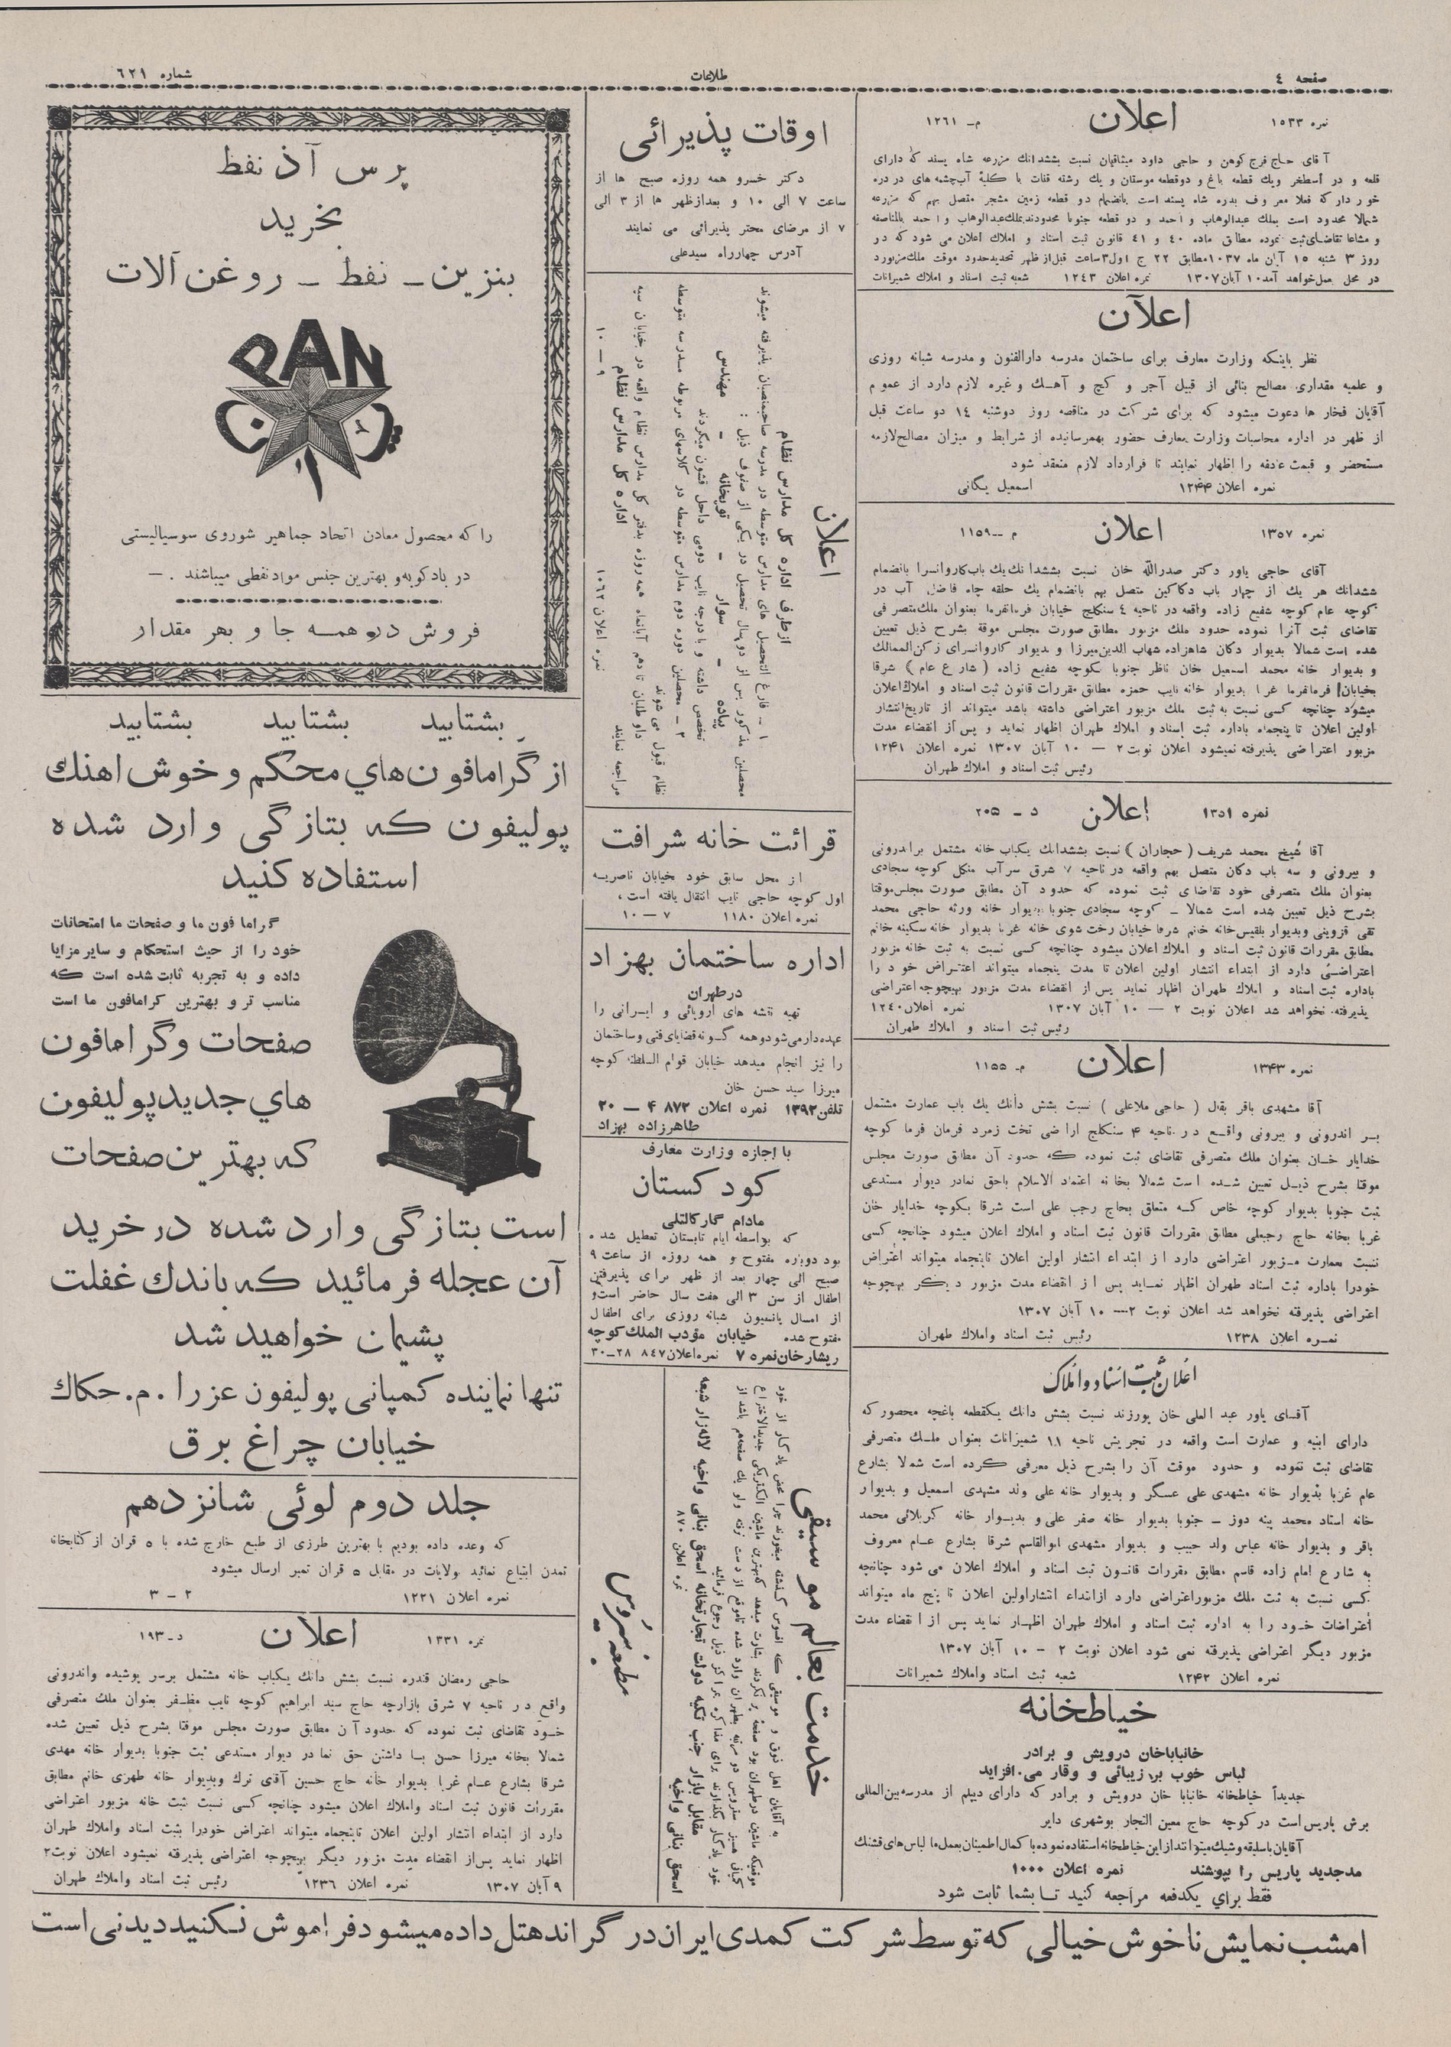 صفحه ٤
طلاعات
شماره ٦٢١
نمره ١٥٣٣
اعلان
م- ١٢٦١
آقای حاج فرج کوهن و حاجی داود میثاقیان نسبت بششدانك مزرعه شاه پسند که دارای
قلعه و در اسطخر ویك قطعه باغ و دوقطعه موستان و یك رشته قنات با کلیهٔ آب‌چشمه های در دره
خوردار که فعلا معروف بدره شاه پسند است بانضمام دو قطعه زمین مشجر متصل بهم که مزرعه
شمالا محدود است بملك عبدالوهاب و احمد و دو قطعه جنوبا محدودند بملك عبدالوهاب و احمد بالمناصفه
و مشاعا تقاضای ثبت نموده مطابق ماده ٤٠ و ٤١ قانون ثبت اسناد و املاك اعلان می شود که در
روز ٣ شنبه ١٥ آبان ماه ١٠٣٧مطابق ٢٢ ج اول ٣ساعت قبل از ظهر تحدیدحدود موقت ملك مزبورد
در محل بعمل خواهد آمد ١٠ آبان ١٣٠٧ نمره اعلان ١٢٤٣ شعبه ثبت اسناد و املاك شمیرانات
اعلان
نظر باینکه وزارت معارف برای ساختمان مدرسه دارالفنون و مدرسه شبانه روزی
و علمیه مقداری مصالح بنائی از قبیل آجر و گچ و آهك و غیره لازم دارد از عموم
آقایان فخار ها دعوت میشود که برای شرکت در مناقصه روز دوشنبه ١٤ دو ساعت قبل
از ظهر در اداره محاسبات وزارت معارف حضور بهمرسانیده از شرایط و میزان مصالح لازمه
مستحضر و قیمت عادله را اظهار نمایند تا قرارداد لازم منعقد شود
نمره اعلان ١٢٤٤ اسمعیل یگانی
نمره ١٣٥٧
اعلان
م -١١٥٩
آقای حاجی یاور دکتر صدرالله خان نسبت بششدانك یك باب کاروانسرا بانضمام
ششدانك هر یك از چهار باب دکاکین متصل بهم بانضمام یك حلقه چاه فاضل آب در
کوچه عام کوچه شفیع زاده واقعه در ناحیه ٤ سنگلج خیابان فرمانفرما بعنوان ملك متصرفی
تقاضای ثبت آنرا نموده حدود ملك مزبور مطابق صورت مجلس موقة بشرح ذیل تعیین
شده است شمالا بدیوار دکان شاهزاده شهاب الدین میرزا و بدیوار کاروانسرای رکن‌الممالك
و بدیوار خانه محمد اسمعیل خان ناظر جنوبا بکوچه شفیع زاده ( شارع عام ) شرقا
بخیابان فرمانفرما غربا بدیوار خانه نایب حمزه مطابق مقررات قانون ثبت اسناد و املاك اعلان
میشود چنانچه کسی نسبت به ثبت ملك مزبور اعتراضی داشته باشد میتواند از تاریخ انتشار
اولین اعلان تا پنجماه باداره ثبت اسناد و املاك طهران اظهار نماید و پس از انقضاء مدت
مزبور اعتراضی پذیرفته نمیشود اعلان نوبت ٢ — ١٠ آبان ١٣٠٧ نمره اعلان ١٢٤١
رئیس ثبت اسناد و املاك طهران
نمره ١٣٥١
اعلان
د - ٢٠٥
آقا شیخ محمد شریف ( حجاران ) نسبت بششدانك یکباب خانه مشتمل براندرونی
و بیرونی و سه باب دکان متصل بهم واقعه در ناحیه ٧ شرق سرآب منگل کوچه سجادی
بعنوان ملك متصرفی خود تقاضای ثبت نموده که حدود آن مطابق صورت مجلس موقتا
بشرح ذیل تعیین شده است شمالا — کوچه سجادی جنوبا بدیوار خانه ورثه حاجی محمد
تقی قزوینی وبدیوار بلقیس خانه خانم شرقا خیابان رخت شوی خانه غربا بدیوار خانه سکینه خانم
مطابق مقررات قانون ثبت اسناد و املاك اعلان میشود چنانچه کسی نسبت به ثبت خانه مزبور
اعتراضی دارد از ابتداء انتشار اولین اعلان تا مدت پنجماه میتواند اعتراض خود را
باداره ثبت اسناد و املاك طهران اظهار نماید پس از انقضاء مدت مزبور بهیچوجه اعتراضی
پذیرفته نخواهد شد اعلان نوبت ٢ — ١٠ آبان ١٣٠٧ نمره اعلان ١٢٤٠
رئیس ثبت اسناد و املاك طهران
نمره ١٣٤٣
اعلان
م- ١١٥٥
آقا مشهدی باقر بقال ( حاجی ملاعلی ) نسبت بشش دانك یك باب عمارت مشتمل
بر اندرونی و بیرونی واقع در ناحیه ٤ سنگلج اراضی تخت زمرد فرمان فرما کوچه
خدایار خان بعنوان ملك متصرفی تقاضای ثبت نموده که حدود آن مطابق صورت مجلس
موقتا بشرح ذیل تعیین شده است شمالا بخانه اعتماد الاسلام باحق نمادر دیوار مستدعی
ثبت جنوبا بدیوار کوچه خاص که متعلق بحاج رجب علی است شرقا بکوچه خدایار خان
غربا بخانه حاج رجبعلی مطابق مقررات قانون ثبت اسناد و املاك اعلان میشود چنانچه کسی
نسبت بعمارت مزبور اعتراضی دارد از ابتداء انتشار اولین اعلان تا پنجماه میتواند اعتراض
خودرا باداره ثبت اسناد طهران اظهار نماید پس از انقضاء مدت مزبور دیگر بهیچوجه
اعتراضی پذیرفته نخواهد شد اعلان نوبت ٢— ١٠ آبان ١٣٠٧
نمره اعلان ١٢٣٨ رئیس ثبت اسناد واملاك طهران
اعلان ثبت اسناد و املاک
آقای یاور عبد العلی خان پورزند نسبت بشش دانك یکقطعه باغچه محصور که
دارای ابنیه و عمارت است واقعه در تجریش ناحیه ١١ شمیرانات بعنوان ملك متصرفی
تقاضای ثبت نموده و حدود موقت آن را بشرح ذیل معرفی کرده است شمالا بشارع
عام غربا بدیوار خانه مشهدی علی عسگر و بدیوار خانه علی وند مشهدی اسمعیل و بدیوار
خانه استاد محمد پینه دوز - جنوبا بدیوار خانه صفر علی و بدیوار خانه کربلائی محمد
باقر و بدیوار خانه عباس ولد حبیب و بدیوار مشهدی ابوالقاسم شرقا بشارع عام معروف
به شارع امام زاده قاسم مطابق مقررات قانون ثبت اسناد و املاك اعلان می شود چنانچه
کسی نسبت به ثبت ملك مزبور اعتراضی دارد از ابتداء انتشار اولین اعلان تا پنج ماه میتواند
اعتراضات خود را به اداره ثبت اسناد و املاك طهران اظهار نماید پس از انقضاء مدت
مزبور دیگر اعتراضی پذیرفته نمی شود اعلان نوبت ٢ - ١٠ آبان ١٣٠٧
نمره اعلان ١٢٤٢ شعبه ثبت اسناد واملاك شمیرانات
خیاطخانه
خانباباخان درویش و برادر
لباس خوب بر زیبائی و وقار می‌افزاید
جدیداً خیاطخانه خانبابا خان درویش و برادر که دارای دیپلم از مدرسه بین‌المللی
برش پاریس است در کوچه حاج معین التجار بوشهری دایر
آقایان باسلیقه وشیك میتوانند از این خیاطخانه استفاده نموده با کمال اطمینان بعمل ما لباس های قشنك
مدجدید پاریس را بپوشند نمره اعلان ١٠٠٠
فقط برای یکدفعه مراجعه کنید تا بشما ثابت شود
اوقات پذیرائی
دکتر خسرو همه روزه صبح ها از
ساعت ٧ الی ١٠ و بعدازظهر ها از ٣ الی
٧ از مرضای محترم پذیرائی می نمایند
آدرس چهارراه سیدعلی
اعلان
ازطرف اداره کل مدارس نظام
١ - فارغ التحصیل های مدارس متوسطه در مدرسه صاحبمنصبان پذیرفته میشوند
محصلین مذکور پس از دو سال تحصیل در یکی از صنوف ذیل :
پیاده - سوار - توپخانه - مهندس
تخصص داشته و با درجه نایب دومی داخل قشون میگردند
٢ - محصلین دوره دوم مدارس متوسطه در کلاسهای مربوطه مدرسه متوسطه
نظام قبول می شوند
داوطلبان تا دهم آبانماه همه روزه بدفتر کل مدارس نظام واقعه در خیابان سپه
مراجعه نمایند اداره کل مدارس نظام
نمره اعلان ١٠٦٢ ٩ - ١٠
قرائت خانه شرافت
از محل سابق خود خیابان ناصریه
اول کوچه حاجی نایب انتقال یافته است ،
نمره اعلان ١١٨٠ ٧ — ١٠
اداره ساختمان بهزاد
درطهران
تهیه نقشه های اروپائی و ایرانی را
عهده‌دار می‌شود و همه گونه قضایای فنی و ساختمان
را نیز انجام میدهد خیابان قوام السلطنه کوچه
میرزا سید حسن خان
تلفن ١٣٩٣ نمره اعلان ٨٧٢ ٤ — ٢٠
طاهرزاده بهزاد
با اجازه وزارت معارف
کودکستان
مادام گارکالتلی
که بواسطه ایام تابستان تعطیل شده
بود دوباره مفتوح و همه روزه از ساعت ٩
صبح الی چهار بعد از ظهر برای پذیرفتن
اطفال از سن ٣ الی هفت سال حاضر است و
از امسال پانسیون شبانه روزی برای اطفال
مفتوح شده خیابان مؤدب الملك کوچه
ریشارخان نمره ٧ نمره اعلان ٨٤٧ ٢٨—٣٠
خدمت بعالم موسیقی
به آقایان اهل ذوق و موسیقی که افسوس گذشته میخورند چرا عوض یادگار از خود
خود یادگار بگذارند برای مذاکره بمراکز ذیل رجوع فرمائید
مقابل بازار جنب تکیه دولت تجارتخانه اسحق بنائی واخیه لاله‌زار شعبه
اسحق بنائی واخیه نمره اعلان ٨٧٠
مطبعه سیروس
پرس آذ نفط
بخرید
بنزین - نفط - روغن آلات
PAN
را که محصول معادن اتحاد جماهیر شوروی سوسیالیستی
در بادکوبه و بهترین جنس مواد نفطی میباشند . —
فروش در همه جا و بهر مقدار
بشتابید بشتابید بشتابید
از گرامافون‌های محکم و خوش اهنك
پولیفون که بتازگی وارد شده
استفاده کنید
گراما فون ما و صفحات ما امتحانات
خود را از حیث استحکام و سایر مزایا
داده و به تجربه ثابت شده است که
مناسب تر و بهترین گرامافون ما است
صفحات وگرامافون
های جدید پولیفون
که بهترین صفحات
است بتازگی وارد شده در خرید
آن عجله فرمائید که باندك غفلت
پشیمان خواهید شد
تنها نماینده کمپانی پولیفون عزرا .م. حکاك
خیابان چراغ برق
جلد دوم لوئی شانزدهم
که وعده داده بودیم با بهترین طرزی از طبع خارج شده با ٥ قران از کتابخانه
تمدن ابتیاع نمائید بولایات در مقابل ٥ قران تمبر ارسال میشود
نمره اعلان ١٢٢١ ٢ - ٣
نمره ١٣٣١
اعلان
د -١٩٣
حاجی رمضان قندره نسبت بشش دانك یکباب خانه مشتمل برسر پوشیده واندرونی
واقع در ناحیه ٧ شرق بازارچه حاج سید ابراهیم کوچه نایب مظفر بعنوان ملك متصرفی
خود تقاضای ثبت نموده که حدود آن مطابق صورت مجلس موقتا بشرح ذیل تعیین شده
شمالا بخانه میرزا حسن با داشتن حق نما در دیوار مستدعی ثبت جنوبا بدیوار خانه مهدی
شرقا بشارع عام غربا بدیوار خانه حاج حسین آقای ترك وبدیوار خانه طهزی خانم مطابق
مقررات قانون ثبت اسناد واملاك اعلان میشود چنانچه کسی نسبت ثبت خانه مزبور اعتراضی
دارد از ابتداء انتشار اولین اعلان تاپنجماه میتواند اعتراض خودرا بثبت اسناد واملاك طهران
اظهار نماید پس‌از انقضاء مدت مزبور دیگر بهیچوجه اعتراضی پذیرفته نمیشود اعلان نوبت٢
٩ آبان ١٣٠٧ نمره اعلان ١٢٣٦ رئیس ثبت اسناد واملاك طهران
امشب نمایش ناخوش خیالی که توسط شرکت کمدی ایران در گراند هتل داده میشود فراموش نکنید دیدنی است